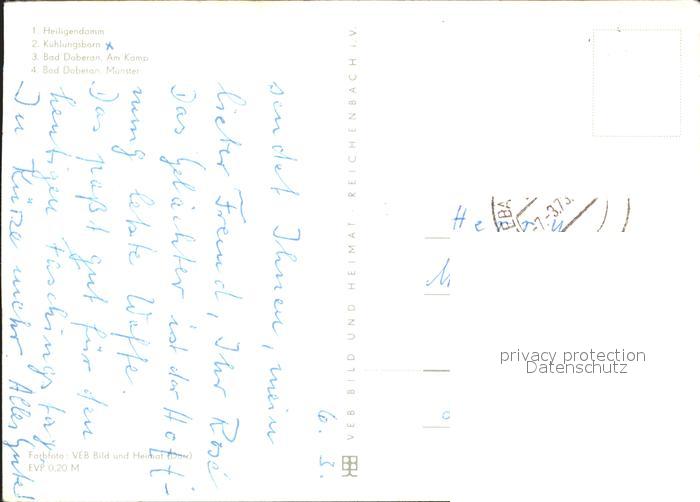 1. Heiligendamm
2. Kühlungsborn x
3. Bad Doberan, Am Kamp
4. Bad Doberan, Münster
6. 3.
sendet Ihnen, mein
lieber Freund, Ihr Rosé
Das Gelächter ist der Hoff-
nung letzte Waffe.
Das paßt gut für den
heutigen Faschingstag.
In Kürze mehr! Alles Gute!
Farbfoto: VEB Bild und Heimat
EVP 0,20 M
VEB BILD UND HEIMAT REICHENBACH I.V.
-7.-3.73.
Herrn
privacy protection
Datenschutz